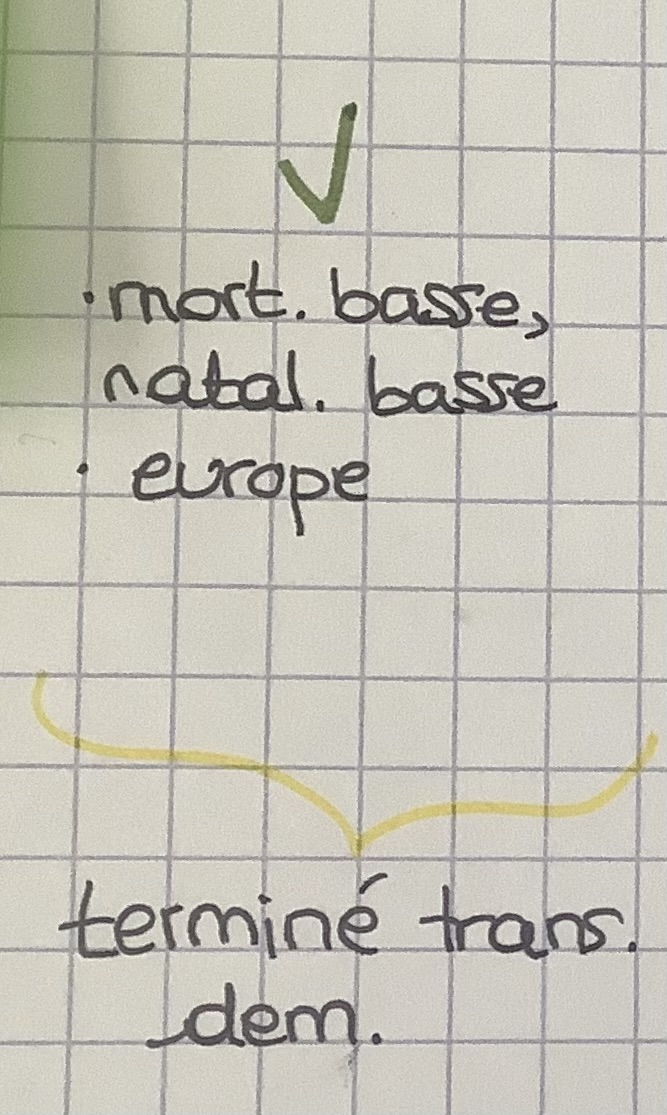 · mort. basse,
natal. basse
· europe
terminé trans.
dem.